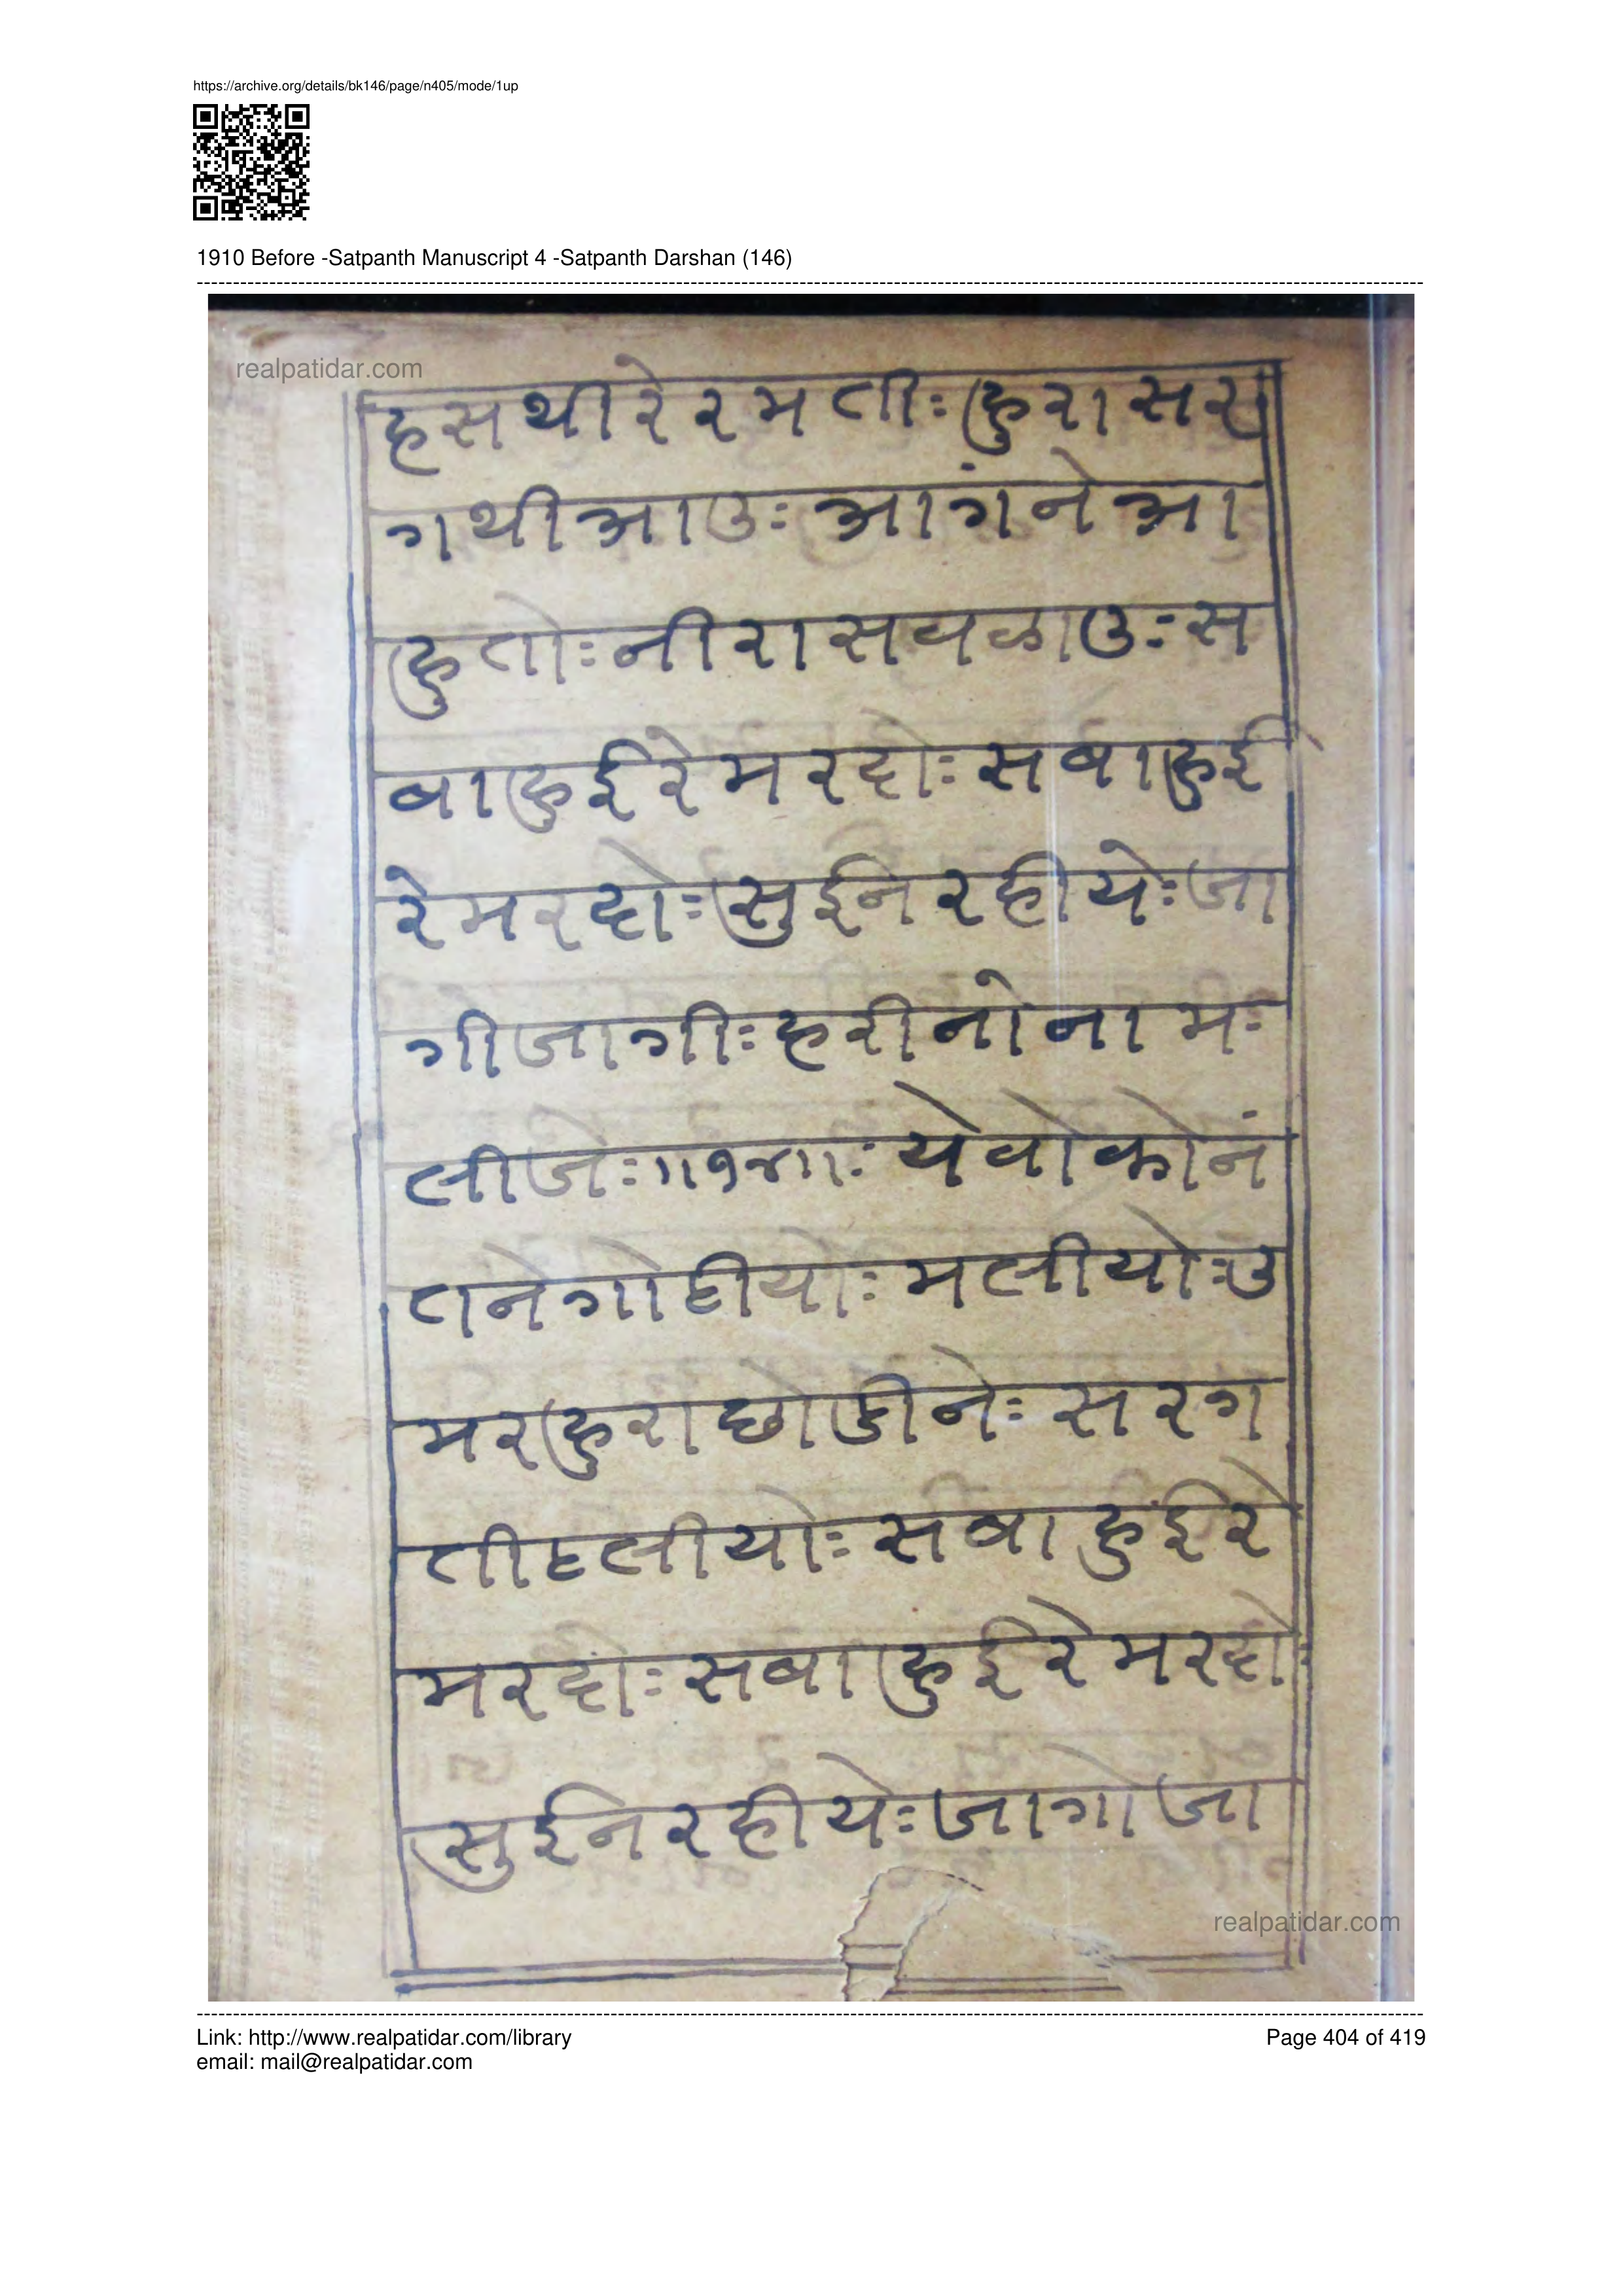 https://archive.org/details/bk146/page/n405/mode/1up
1910 Before -Satpanth Manuscript 4 -Satpanth Darshan (146)
realpatidar.com
हसथीरेरमतीः हुरासर
गथीआउः आगंनेआ
हुतोः नीरासवळाउः स
बाहुईरेमरदोः सबाहुई
रेमरदोः सुईनरहीयेः जा
गीजागीः हरीनोनामः
लीजेः ॥१४॥ः येवोकोनं
तनेगोहीयोः मलीयोः उ
मरहुराछोडीनेः सरग
तीहलीयोः सबाहुईरे
मरदोः सबाहुईरेमरदोः
सुईनरहीयेः जागोजा
realpatidar.com
Link: http://www.realpatidar.com/library
Page 404 of 419
email: mail@realpatidar.com